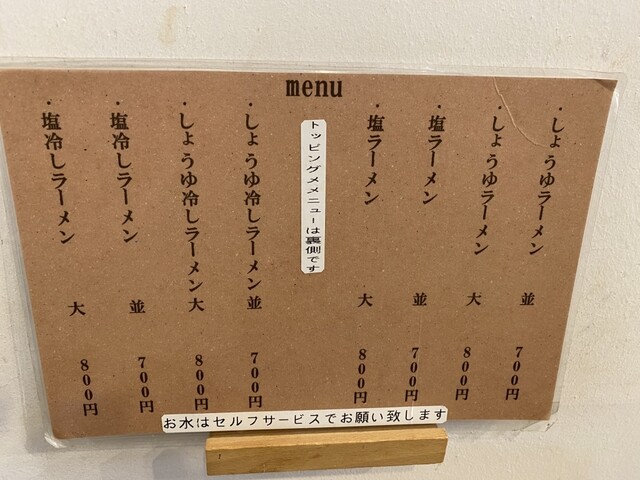 menu
・しょうゆラーメン 並 700円
・しょうゆラーメン 大 800円
・塩ラーメン 並 700円
・塩ラーメン 大 800円
トッピングメメニューは裏側です
・しょうゆ冷しラーメン 並 700円
・しょうゆ冷しラーメン 大 800円
・塩冷しラーメン 並 700円
・塩冷しラーメン 大 800円
お水はセルフサービスでお願い致します